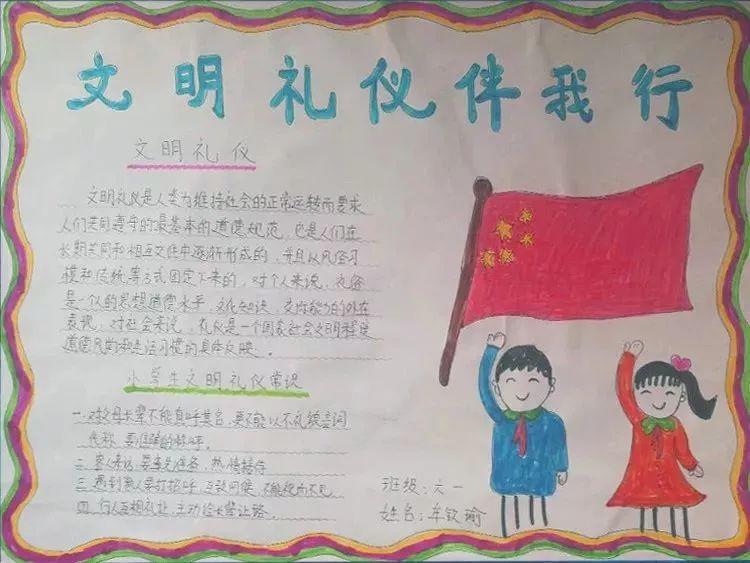 文明礼仪伴我行
文明礼仪
文明礼仪是人类为维持社会的正常运转而要求
人们共同遵守的最基本的道德规范，它是人们在
长期共同和相互交往中逐渐形成的，并且以风俗习
惯和传统等方式固定下来的，对个人来说，礼俗
是一个人的思想道德水平，文化知识，交际能力的外在
表现，对社会来说，礼仪是一个国家社会文明程度
道德风尚和生活习惯的具体反映。
小学生文明礼仪常识
一.对父母长辈不能直呼其名，更不能以不礼貌言词
代称，要
二.客人来访，要事先准备，热情接待
三.遇到熟人要打招呼，互致问候，不能视而不见
四.行人互相礼让，主动给长辈让路。
班级：六一
姓名：牟钦瑜